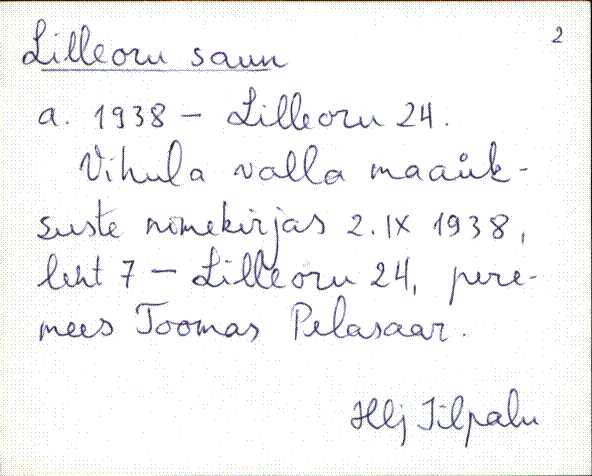 2
Lilleoru saun
a. 1938 - Lilleoru 24.
Vihula valla maaük-
suste nimekirjas 2.IX 1938,
leht 7 - Lilleoru 24, pere-
mees Toomas Pelasaar.